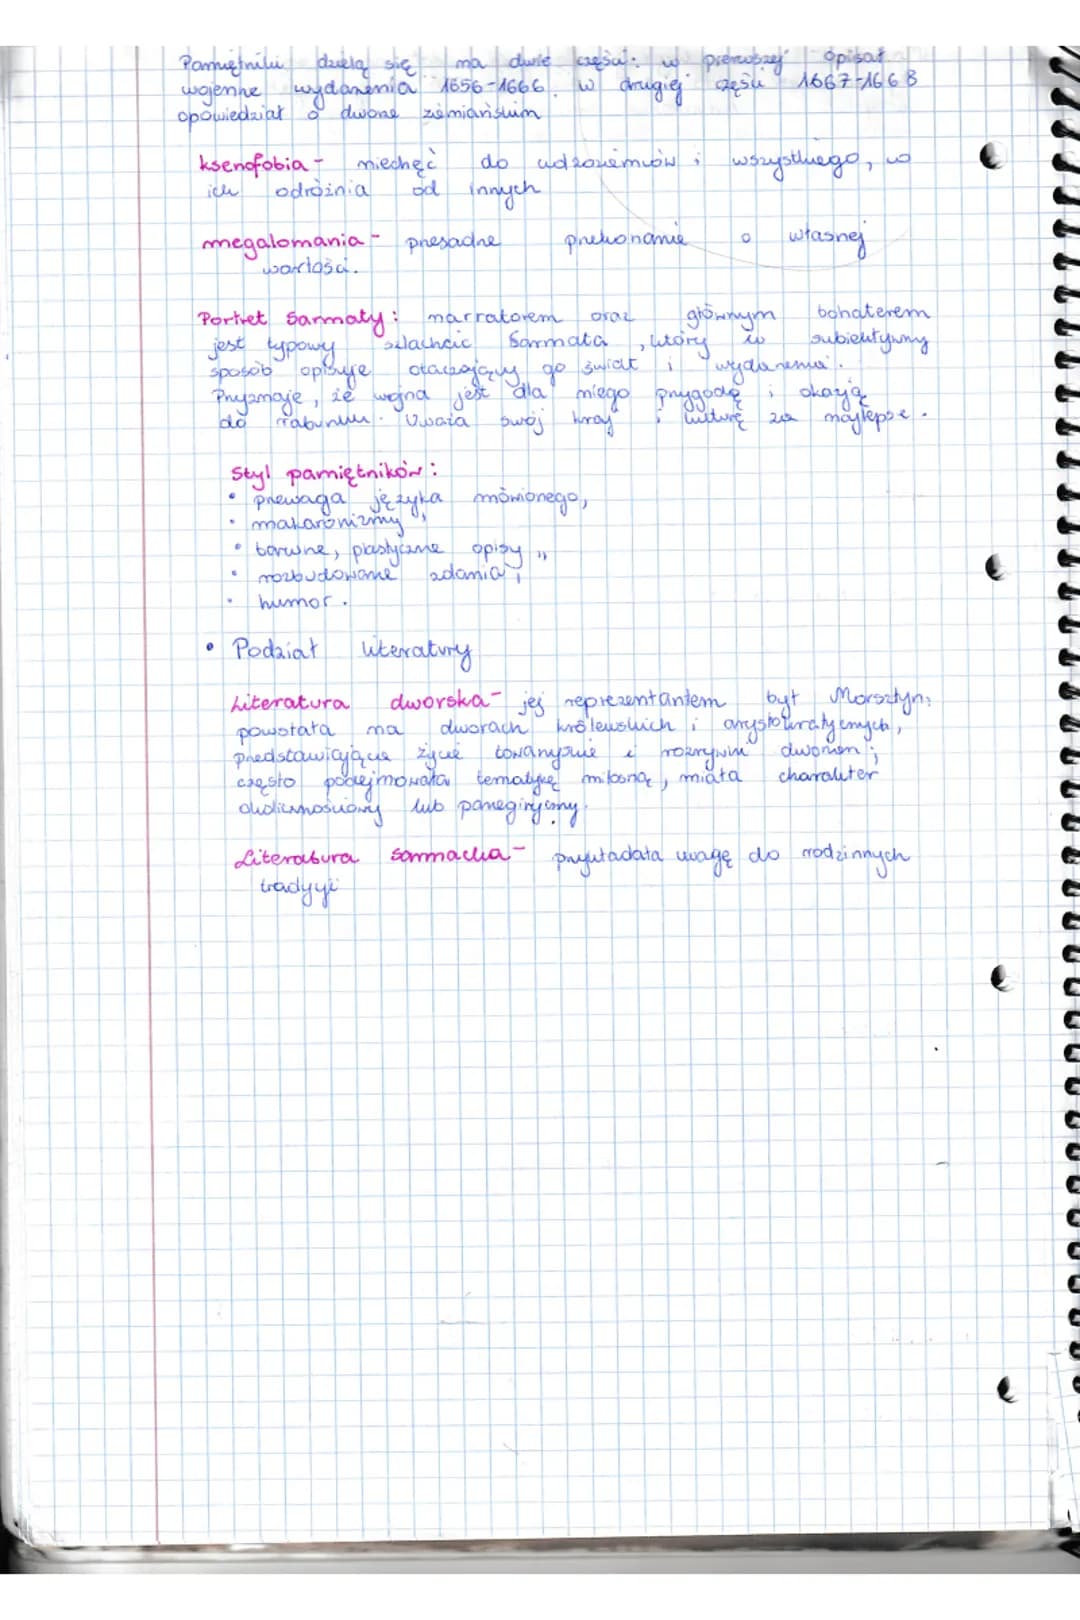 Pamiętniki dzielą się na dwie części: w pierwszej opisał
wojenne wydarzenia 1656-1666. w drugiej części 1667-1668
opowiedział o dworze ziemiańskim
ksenofobia - niechęć do cudzoziemców i wszystkiego, co
ich odróżnia od innych
megalomania - przesadne przekonanie o własnej
wartości.
Portret Sarmaty: narratorem oraz głównym bohaterem
jest typowy szlachcic Sarmata, który w subiektywny
sposób opisuje otaczający go świat i wydarzenia.
Przyznaje, że wojna jest dla niego przygodą i okazją
do rabunku. Uważa swój kraj i kulturę za najlepsze.
Styl pamiętników:
• przewaga języka mówionego,
• makaronizmy,
• barwne, plastyczne opisy,,
• rozbudowane zdania,
• humor.
• Podział literatury
Literatura dworska - jej reprezentantem był Morsztyn;
powstała na dworach królewskich i arystokratycznych,
przedstawiająca życie towarzyskie i rozrywki dworzan;
często podejmowała tematykę miłosną, miała charakter
okolicznościowy lub panegiryczny.
Literatura sarmacka - przykładała uwagę do rodzinnych
tradycji